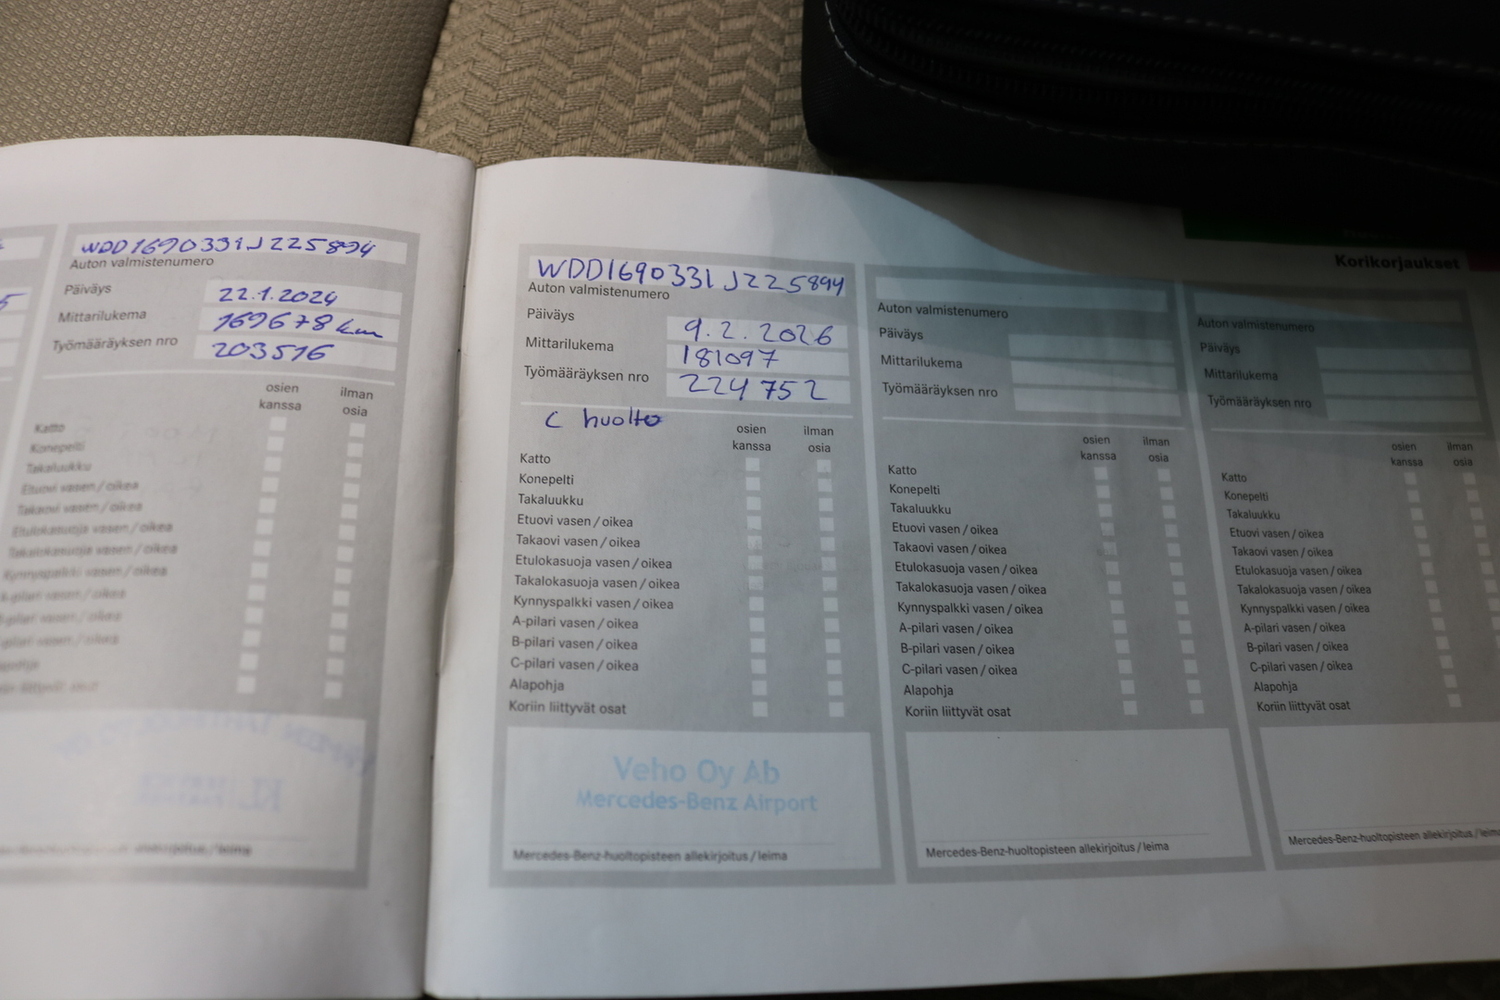 WDD1690331J225894
Auton valmistenumero
Päiväys 22.1.2024
Mittarilukema 169678 km
Työmääräyksen nro 203516
osien kanssa
ilman osia
Katto
Konepelti
Takaluukku
Etuovi vasen / oikea
Takaovi vasen / oikea
Etulokasuoja vasen / oikea
Takalokasuoja vasen / oikea
Kynnyspalkki vasen / oikea
-pilari vasen / oikea
-pilari vasen / oikea
-pilari vasen / oikea
allekirjoitus / leima
WDD1690331J225894
Auton valmistenumero
Päiväys 9.2.2026
Mittarilukema 181097
Työmääräyksen nro 224752
C huolto
osien kanssa
ilman osia
Katto
Konepelti
Takaluukku
Etuovi vasen / oikea
Takaovi vasen / oikea
Etulokasuoja vasen / oikea
Takalokasuoja vasen / oikea
Kynnyspalkki vasen / oikea
A-pilari vasen / oikea
B-pilari vasen / oikea
C-pilari vasen / oikea
Alapohja
Koriin liittyvät osat
Veho Oy Ab
Mercedes-Benz Airport
Mercedes-Benz-huoltopisteen allekirjoitus / leima
Auton valmistenumero
Päiväys
Mittarilukema
Työmääräyksen nro
osien kanssa
ilman osia
Katto
Konepelti
Takaluukku
Etuovi vasen / oikea
Takaovi vasen / oikea
Etulokasuoja vasen / oikea
Takalokasuoja vasen / oikea
Kynnyspalkki vasen / oikea
A-pilari vasen / oikea
B-pilari vasen / oikea
C-pilari vasen / oikea
Alapohja
Koriin liittyvät osat
Mercedes-Benz-huoltopisteen allekirjoitus / leima
Korikorjaukset
Auton valmistenumero
Päiväys
Mittarilukema
Työmääräyksen nro
osien kanssa
ilman osia
Katto
Konepelti
Takaluukku
Etuovi vasen / oikea
Takaovi vasen / oikea
Etulokasuoja vasen / oikea
Takalokasuoja vasen / oikea
Kynnyspalkki vasen / oikea
A-pilari vasen / oikea
B-pilari vasen / oikea
C-pilari vasen / oikea
Alapohja
Koriin liittyvät osat
Mercedes-Benz-huoltopisteen allekirjoitus / leima